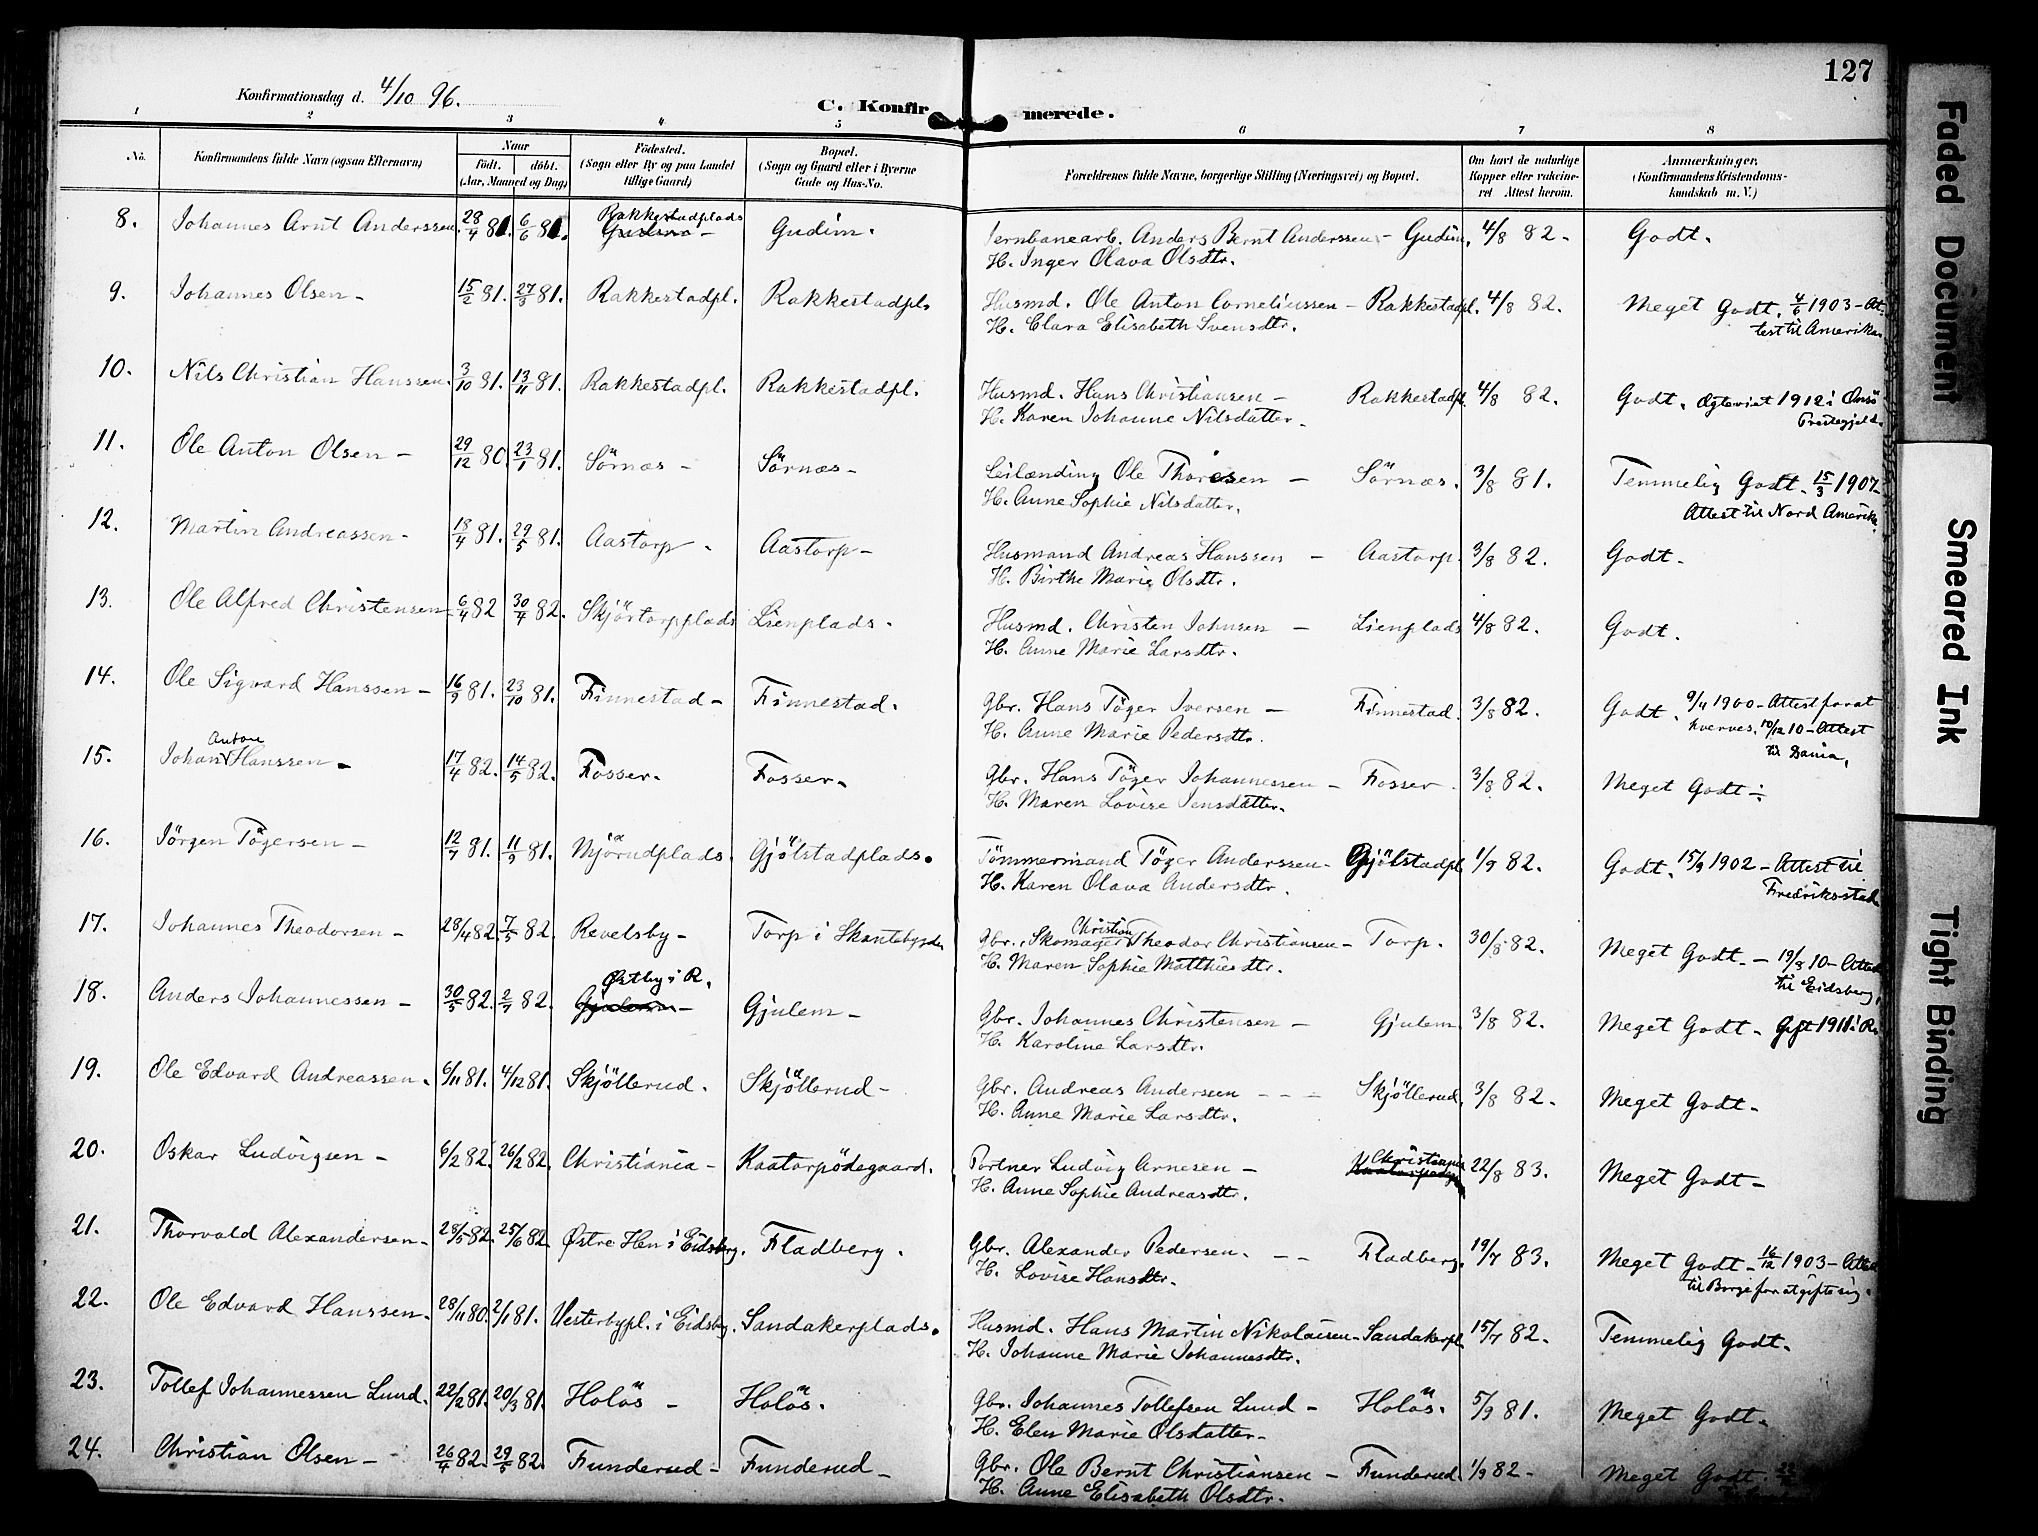 127
Konfirmationsdag d. 4/10 96.
C. Konfirmerede.
1 2 3 4 5 6 7 8
No.
Konfirmandens fulde Navn (ogsaa Efternavn)
Naar
födt. döbt.
(Aar, Maaned og Dag)
Födested.
(Sogn eller By og paa Landet tillige Gaard)
Bopæl.
(Sogn og Gaard eller i Byerne Gade og Hus-No.
Forældrenes fulde Navne, borgerlige Stilling (Næringsvei) og Bopæl.
Om havt de naturlige Kopper eller vaccineret Attest herom.
Anmærkninger.
(Konfirmandens Kristendomskundskab m. V.)
8. Johannes Arnt Anderssen. 28/4 81. 6/6 81. Rakkestadplads Gudim. Jernbanearb. Anders Bernt Anderssen - Gudim. 4/8 82. Godt.
H. Inger Olava Olsdtr.
9. Johannes Olsen 15/2 81. 27/3 81. Rakkestadpl. Rakkestadpl. Husmd. Ole Anton Corneliussen - Rakkestadpl. 4/8 82. Meget Godt. 4/6 1903 - Attest til Amerika.
H. Clara Elisabeth Svensdtr.
10. Nils Christian Hanssen. 3/10 81. 13/11 81. Rakkestadpl. Rakkestadpl. Husmd. Hans Christiansen - Rakkestadpl. 4/8 82. Godt. Ægteviet 1912 i Onsö Prestegjeld.
H. Karen Johanne Nilsdatter.
11. Ole Anton Olsen - 29/12 80. 23/1 81. Sörnæs - Sörnæs - Leilænding Ole Thoresen - Sörnæs. 3/8 81. Temmelig Godt. 15/3 1907 - Attest til Nord Amerika.
H. Anne Sophie Nilsdatter.
12. Martin Andreassen - 18/4 81. 29/5 81. Aastorp. Aastorp - Husmand Andreas Hanssen - Aastorp. 3/8 82. Godt.
H. Birthe Marie Olsdtr.
13. Ole Alfred Christensen 6/4 82 30/4 82. Skjörtorpplads Lienplads. Husmd. Christen Johnsen - Lienplads 4/8 82. Godt.
H. Anne Marie Larsdtr.
14. Ole Sigvard Hanssen - 16/9 81. 23/10 81. Finnestad - Finnestad. Gbr. Hans Töger Iversen - Finnestad. 3/8 82. Godt. 9/4 1900 - Attest for at hverves. 10/12 10 - Attest til Dania.
H. Anne Marie Pedersdtr.
15. Johan Anton Hanssen - 17/4 82. 14/5 82. Fosser. Fosser. Gbr. Hans Töger Johannessen - Fosser. 3/8 82. Meget Godt ÷
H. Maren Lovise Jensdatter.
16. Jörgen Tögersen - 12/7 81. 11/9 81. Mjörudplads. Gjölstadplads. Tömmermand Töger Anderssen - Gjölstadpl. 1/9 82. Godt. 15/9 1902 - Attest til Fredriksstad
H. Karen Olava Andersdtr.
17. Johannes Theodorsen - 28/4 82. 7/5 82. Revelsby - Torp i Skantebygden Gbr. Skomager Christian Theodor Christiansen - Torp. 30/8 82. Meget Godt. - 19/8 10 - Attest til Eidsberg.
H. Maren Sophie Matthiesdtr.
18. Anders Johannessen - 30/5 82. 2/7 82. Østby i R. Gjulem - Gjulem - Gbr. Johannes Christensen - Gjulem. 3/8 82. Meget Godt - Gift 1911 i R.
H. Karoline Larsdtr.
19. Ole Edvard Andreassen. 6/11 81. 4/12 81. Skjöllerud. Skjöllerud - Gbr. Andreas Andersen - - - Skjöllerud. 3/8 82. Meget Godt -
H. Anne Marie Larsdtr.
20. Oskar Ludvigsen - 6/2 82. 26/2 82. Christiania - Kaatorpödegaard. Portner Ludvig Arnesen - Christiania 22/8 83. Meget Godt -
H. Anne Sophie Andreasdtr.
21. Thorvald Alexandersen. 28/5 82. 25/6 82. Østre Hen i Eidsberg. Fladberg. Gbr. Alexander Pedersen. - - Fladberg. 19/7 83. Meget Godt - 16/12 1903 - Attest til Borge for at gifte sig.
H. Lovise Hansdtr.
22. Ole Edvard Hanssen. 28/11 80. 2/1 81. Vesterbypl. i Eidsbg. Sandakerplads. Husmd. Hans Martin Nikolaisen - Sandakerpl. 15/7 82. Temmelig Godt.
H. Johanne Marie Johannesdtr.
23. Tollef Johannessen Lund. 22/2 81. 20/3 81. Holös - Holös. Gbr. Johannes Tollefsen Lund - Holös. 5/9 81. Meget Godt -
H. Elen Marie Olsdatter -
24. Christian Olsen - 26/4 82. 29/5 82. Funderud - Funderud - Gbr. Ole Bernt Christiansen - Funderud. 1/9 82 - Meget Godt.
H. Anne Elisabeth Olsdtr.
Faded Document
Smeared Ink
Tight Binding